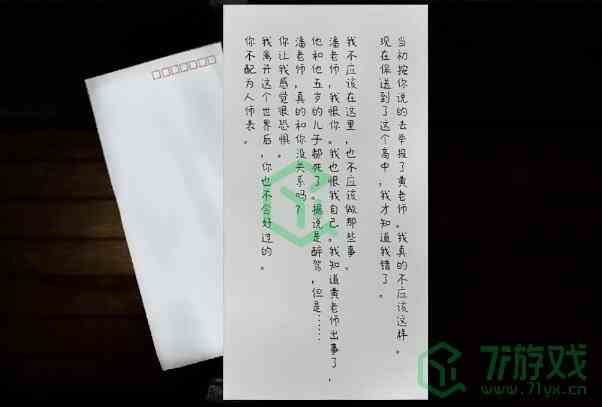 当初按你说的去举报了黄老师。我真的不应该这样。
现在保送到了这个高中，我才知道我错了。
我不应该在这里，也不应该做那些事。
潘老师，我恨你。我也恨我自己。我知道黄老师出事了，
他和他五岁的儿子都死了。据说是醉驾，但是……
潘老师，真的和你没关系吗？
你让我感觉很恐惧。
我离开这个世界后，你也不会好过的。
你不配为人师表。
71游戏
www.71yx.cn